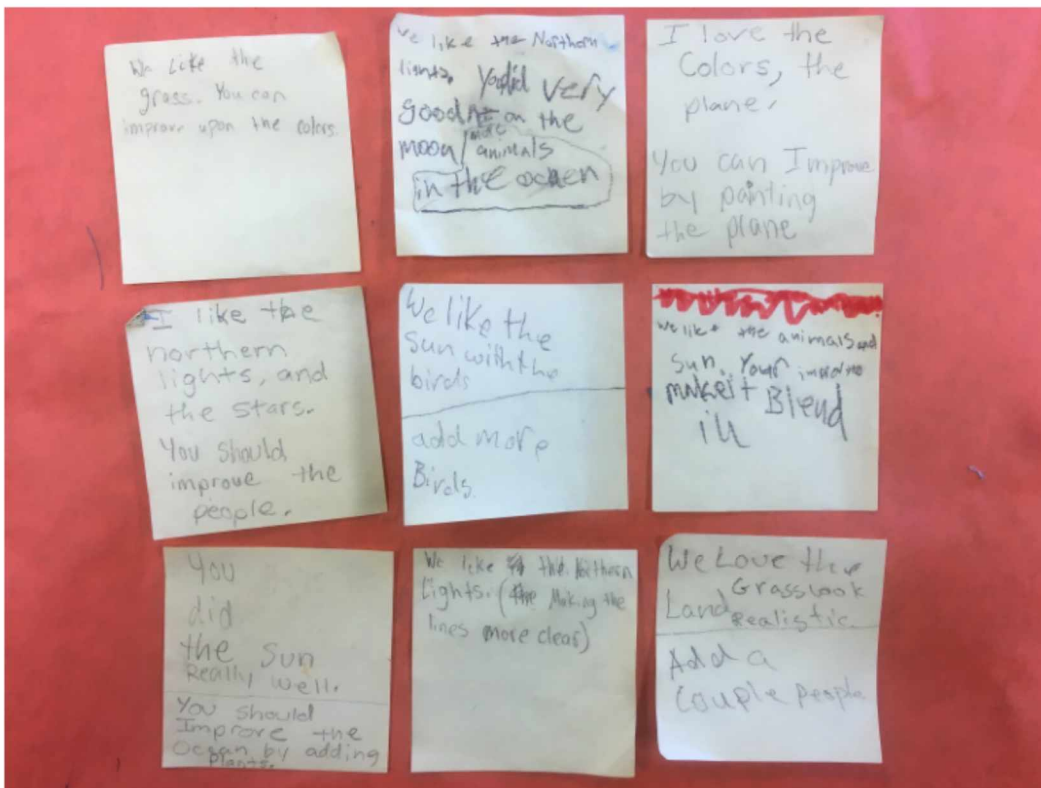 We Like the
grass. You can
improve upon the colors.
We like the Northern
lights. You did very
good on the
moon/more animals
in the ocean
I love the
Colors, the
plane.
You can Improve
by painting
the plane
I like the
northern
lights, and
the stars.
You should
improve the
people.
We like the
Sun with the
birds
add more
Birds.
We like the animals and
Sun. Your
make it Blend
in
You
did
the Sun
Really well.
You should
Improve the
Ocean by adding
Plants.
We like the Northern
Lights. (Making the
lines more clear)
We Love the
Grass look
Land Realistic.
Add a
Couple people